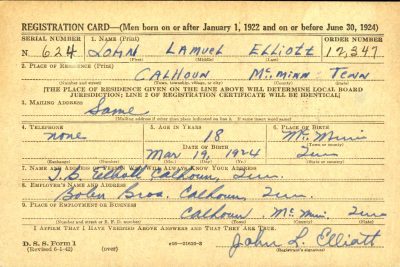 REGISTRATION CARD—(Men born on or after January 1, 1922 and on or before June 30, 1924)
SERIAL NUMBER 1. NAME (Print) ORDER NUMBER
N 624 JOHN LAMUEL ELLIOTT 12,347
(First) (Middle) (Last)
2. PLACE OF RESIDENCE (Print)
CALHOUN McMINN TENN
(Number and street) (Town, township, village, or city) (County) (State)
[THE PLACE OF RESIDENCE GIVEN ON THE LINE ABOVE WILL DETERMINE LOCAL BOARD
JURISDICTION; LINE 2 OF REGISTRATION CERTIFICATE WILL BE IDENTICAL]
3. MAILING ADDRESS
Same
[Mailing address if other than place indicated on line 2. If same insert word same]
4. TELEPHONE 5. AGE IN YEARS 6. PLACE OF BIRTH
none 18 Mc Minn
DATE OF BIRTH (Town or county)
Mar 19, 1924 Tenn
(Exchange) (Number) (Mo.) (Day) (Yr.) (State or country)
7. NAME AND ADDRESS OF PERSON WHO WILL ALWAYS KNOW YOUR ADDRESS
Elliott, Calhoun, Tenn.
8. EMPLOYER'S NAME AND ADDRESS
Bros. Calhoun, Tenn.
9. PLACE OF EMPLOYMENT OR BUSINESS
Calhoun, Mc Minn, Tenn
(Number and street or R. F. D. number) (Town) (County) (State)
I AFFIRM THAT I HAVE VERIFIED ABOVE ANSWERS AND THAT THEY ARE TRUE.
D. S. S. Form 1
(Revised 6-1-42) (over) John L. Elliott
(Registrant's signature)